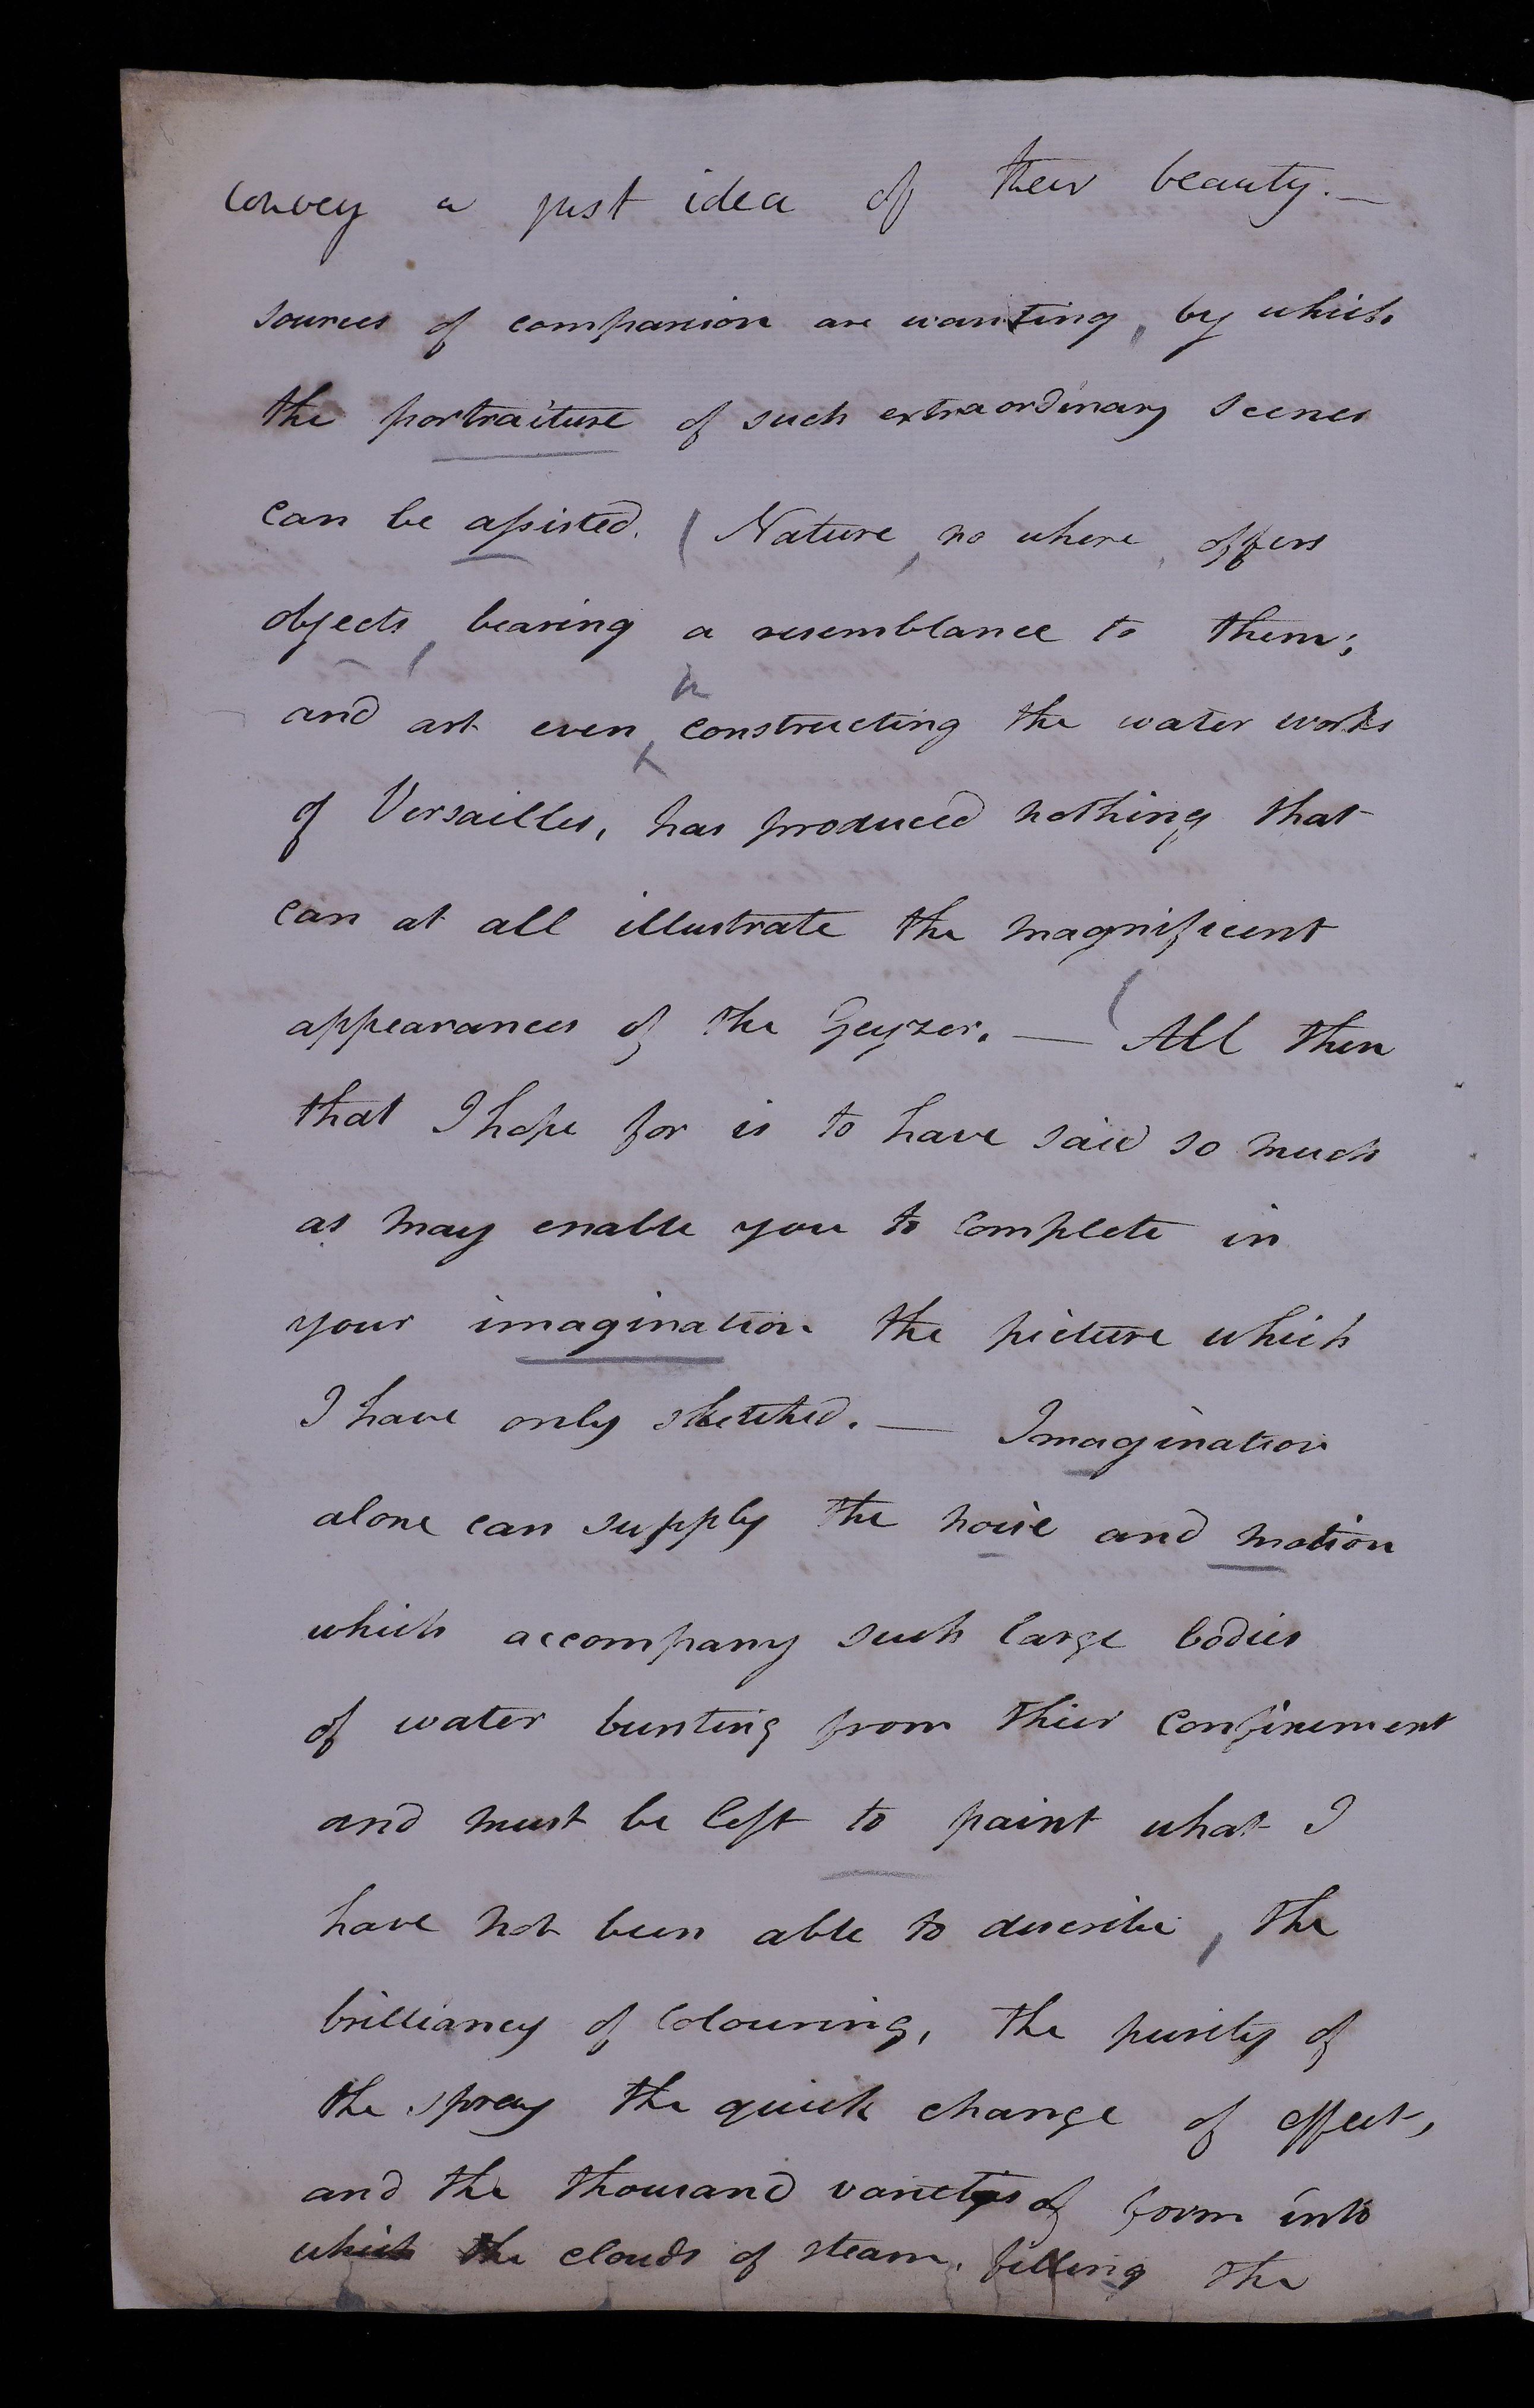 convey a just idea of their beauty. —
sources of comparison are wanting, by which
the portraiture of such extraordinary scenes
can be assisted. (Nature, no where, offers
objects, bearing a resemblance to them;
in
and art even ^ constructing the water works
of Versailles, has produced nothing that
can at all illustrate the magnificent
appearances of the Geyzer. — (All then
that I hope for is to have said so much
as may enable you to complete in
your imagination the picture which
I have only sketched. — Imagination
alone can supply the noise and motion
which accompany such large bodies
of water bursting from thier confinement
and must be left to paint what I
have not been able to describe, the
brilliancy of Colouring, the purity of
the spray the quick change of effect,
and the thousand varietys of form into
which the clouds of steam, filling the